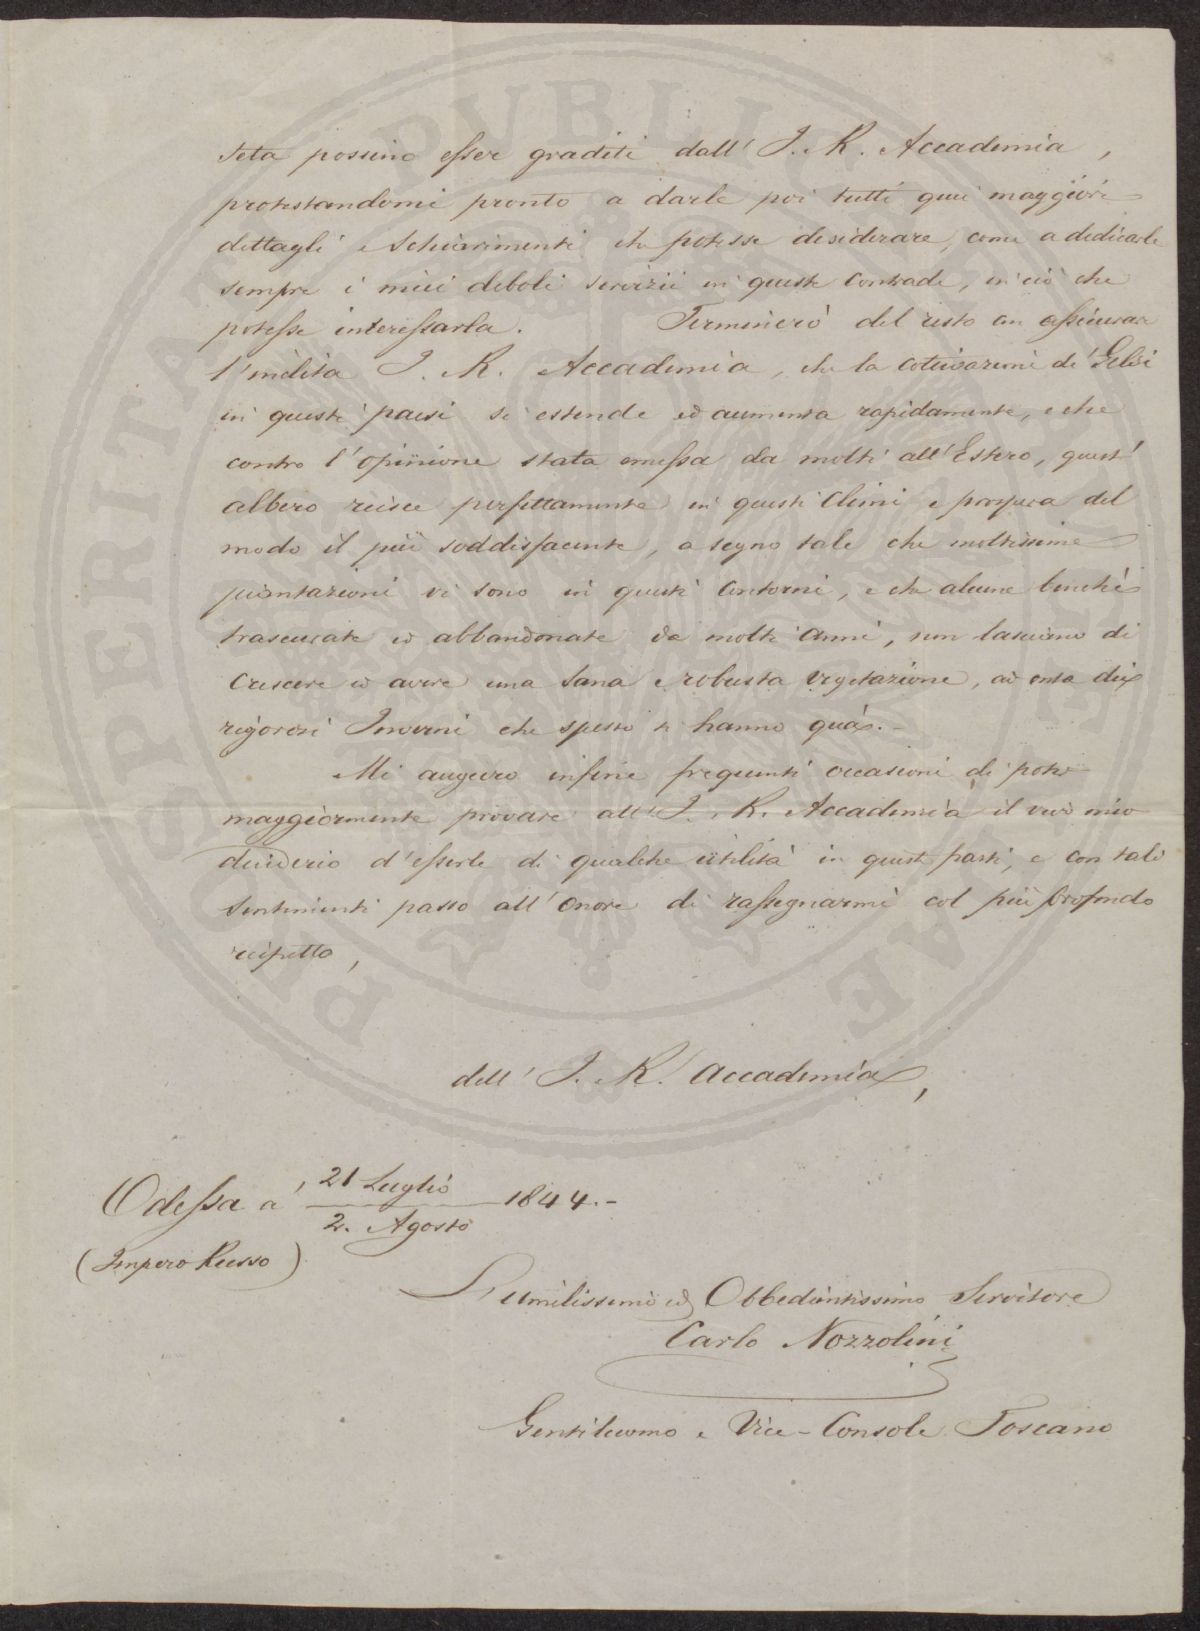 seta possino esser graditi dall' I. R. Accademia,
protestandomi pronto a darle poi tutti quei maggiori
dettagli e schiarimenti che potesse desiderare, come a dedicarle
sempre i miei deboli servizii in queste Contrade, in ciò che
potesse interessarla. Terminerò del resto con assicurare
l'inclita I. R. Accademia, che la coltivazione de' Gelsi
in questi paesi si estende ed aumenta rapidamente, e che
contro l'opinione stata emessa da molti all'Estero, quest'
albero riesce perfettamente in questi Climi e prospera del
modo il più soddisfacente, a segno tale che moltissime
piantazioni vi sono in questi Contorni, e che alcune benchè
trascurate ed abbandonate da molti anni, non lasciano di
Crescere ed avere una sana e robusta vegetazione, ad onta dei
rigorosi Inverni che spesso si hanno quà.-
Mi auguro infine frequenti occasioni di poter
maggiormente provare all'I. R. Accademia il vero mio
desiderio d'esserle di qualche utilità in queste parti, e con tali
sentimenti passo all'Onore di rassegnarmi col più profondo
rispetto,
dell' I. R. Accademia,
Odessa a' 21 Luglio / 2. Agosto 1844.-
(Impero Russo)
L'umilissimo ed Obbedientissimo Servitore
Carlo Nozzolini
Gentiluomo e Vice-Console Toscano
PROSPERITATI PUBLICAE